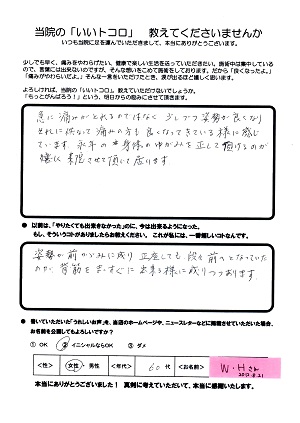 当院の「いいトコロ」 教えてくださいませんか
いつも当院に足を運んでいただきまして、本当にありがとうございます。
少しでも早く、痛みをやわらげたい、健康で楽しい生活を送っていただきたい。施術中は集中しているので、言葉には出来ないのですが、そんな想いをこめて施術をしております。だから「良くなったよ」「痛みがやわらいだよ」、そんな一言をいただけたとき、涙が出るほど嬉しく思います。
よろしければ、当院の「いいトコロ」教えていただけないでしょうか。
「もっとがんばろう!」という、明日からの励みにさせて頂きます。
急に痛みがとれるのではなく 少しづつ 姿勢が良くなり
それに伴なって痛みの方も良くなってきている様に感じ
ています。永年の身体のゆがみを正して頂けるのが
嬉しく 来院させて頂いて居ります
● 以前は、「やりたくても出来なかった」のに、今は出来るようになった。
もし、そういうコトがありましたらお教えください。これが私には、一番嬉しいコトなんです。
姿勢が前かがみに成り 正座しても 前のとなっていた
のが、背筋をまっすぐに出来る様に成りつつあります。
● 書いていただいた「うれしいお声」を、当院のホームページや、ニュースレターなどに掲載させていただいた場合、
お名前を公開してもよろしいですか?
① OK ② イニシャルならOK ③ ダメ
<性> 女性・男性 <年代> 60代 <お名前> W・Hさん
本当にありがとうございました! 真剣に考えていただいて、本当に感謝いたします。